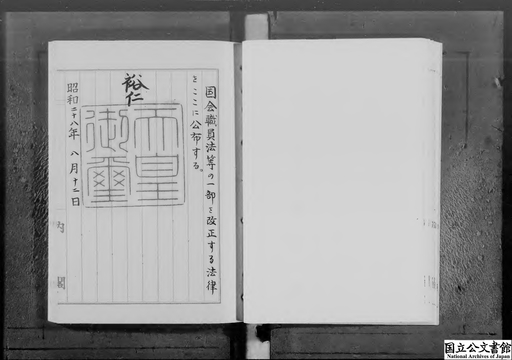 国会職員法等の一部を改正する法律
をここに公布する。
裕仁
天皇
御璽
昭和二十八年八月十二日
内閣
国立公文書館
National Archives of Japan